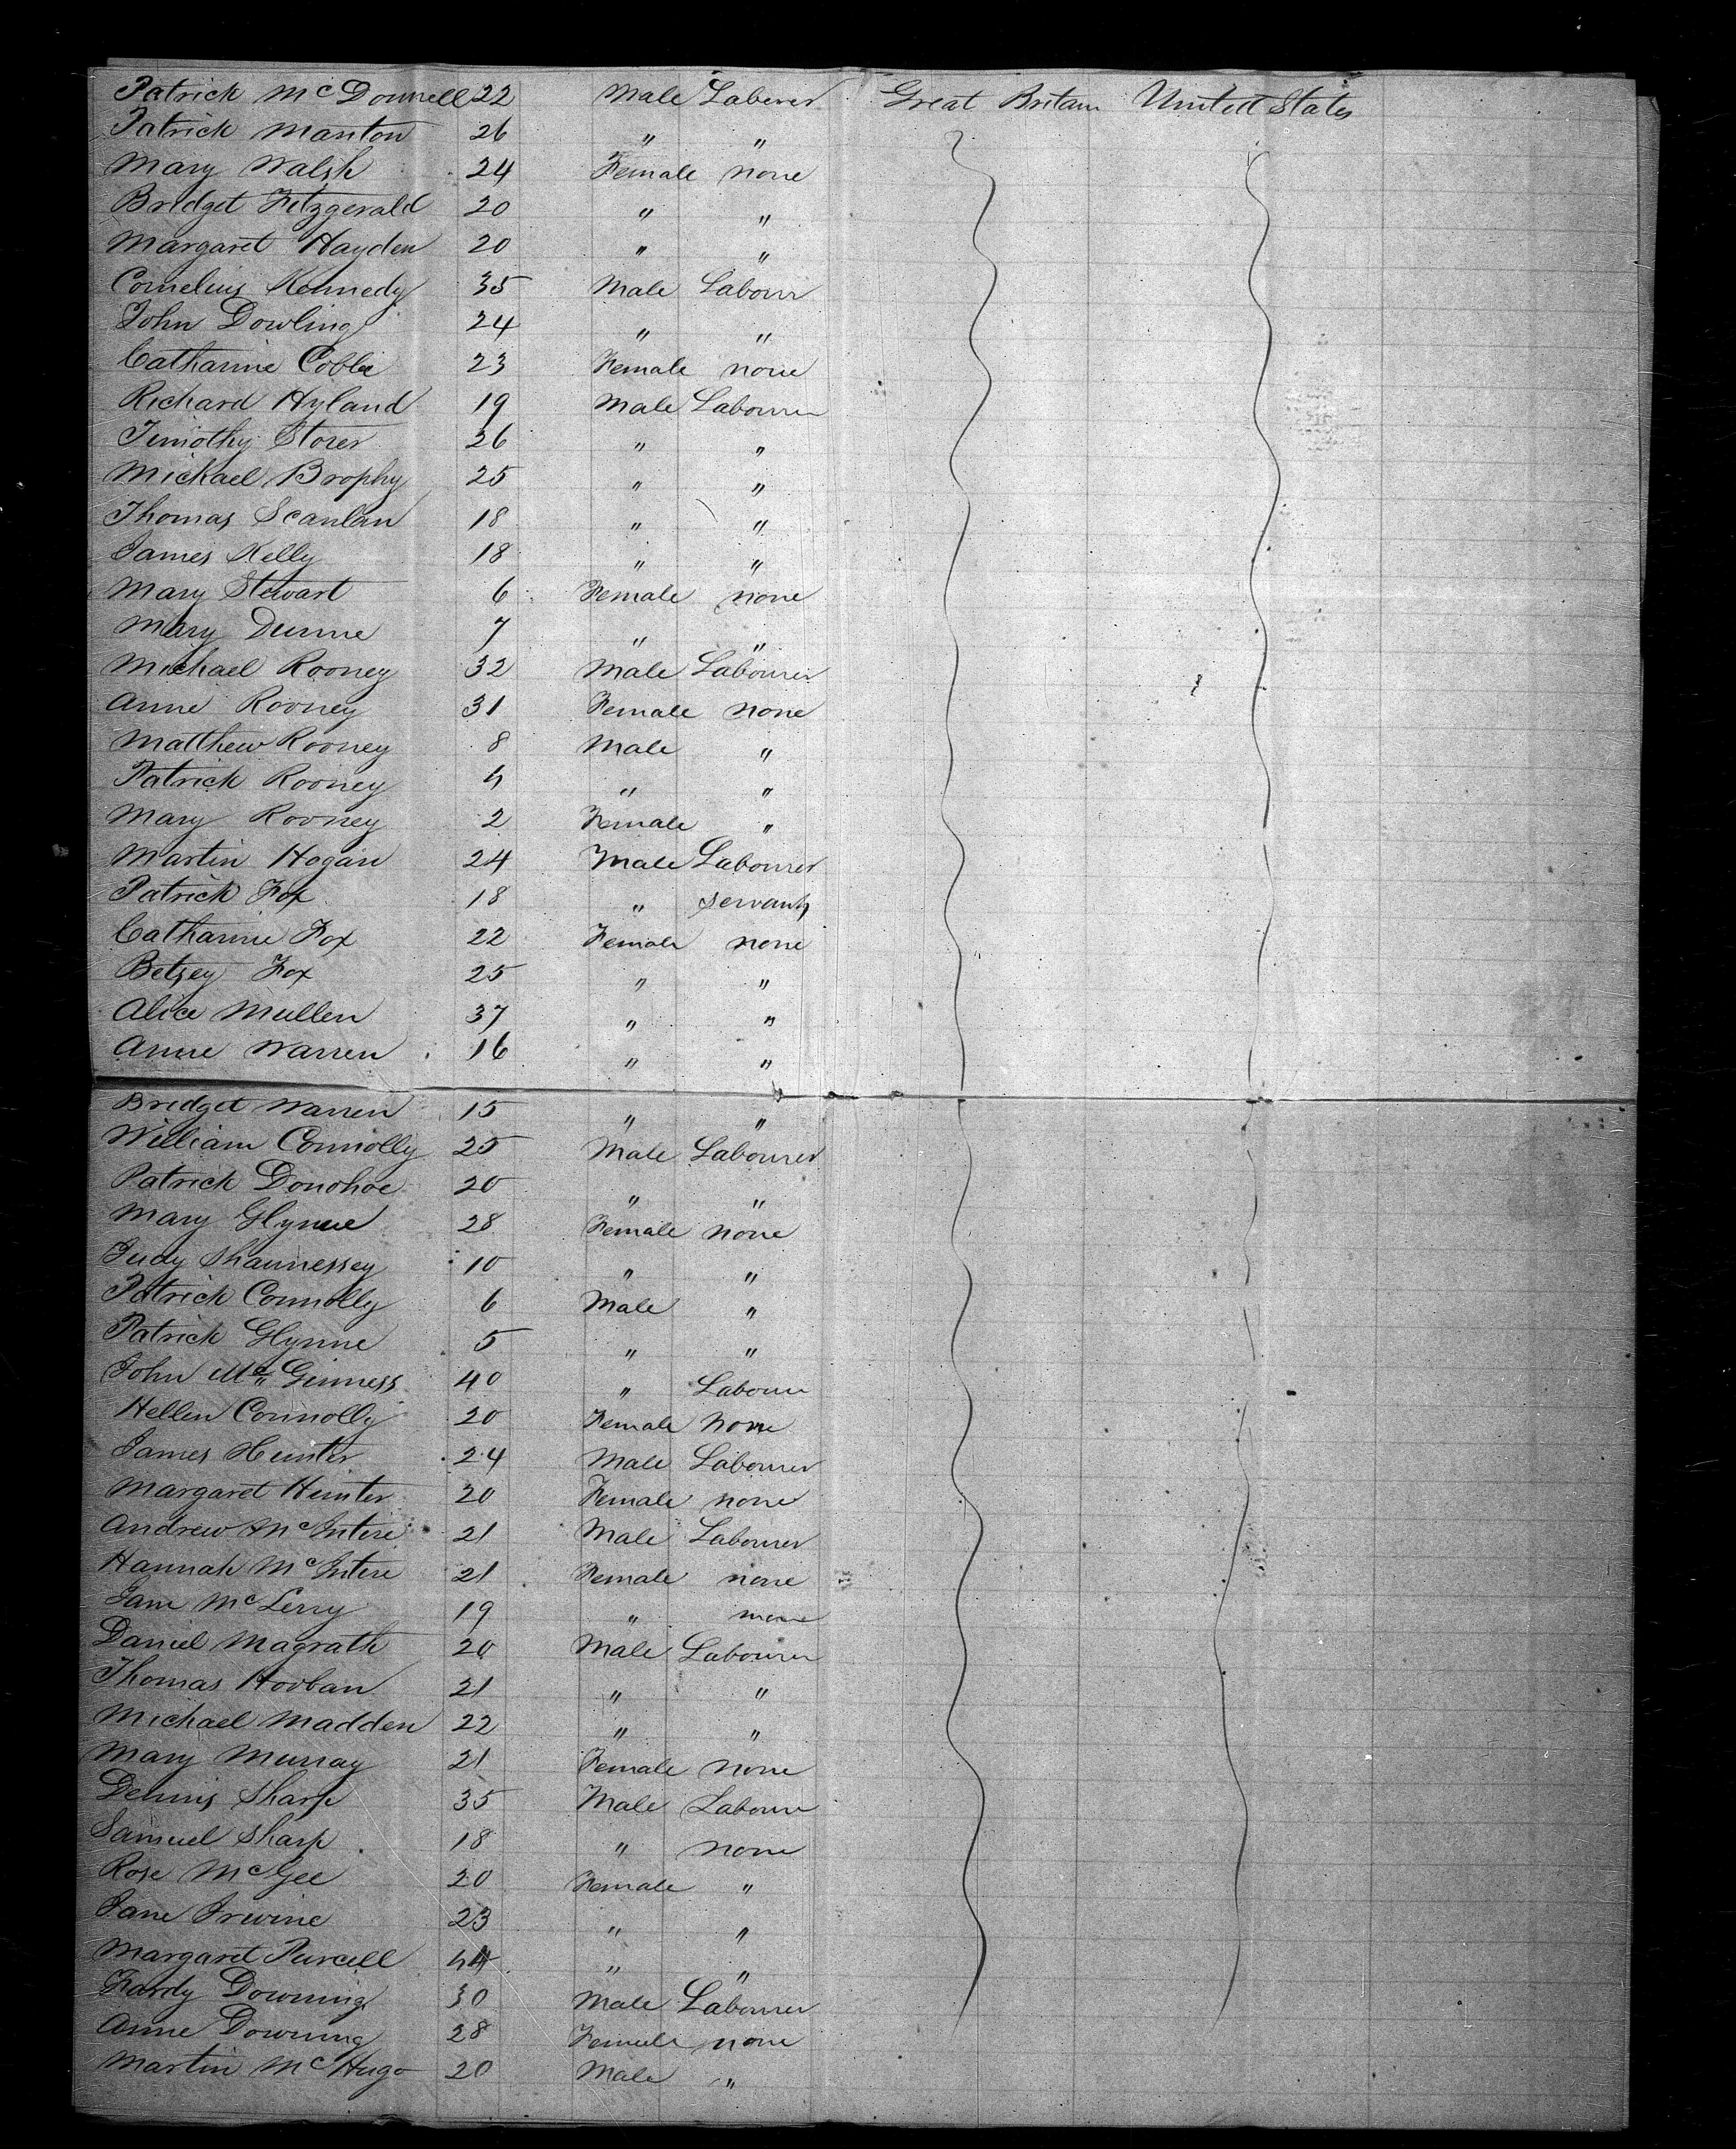 Patrick McDonnell 22 Male Laborer Great Britain United States
Patrick Manton 26 " "
Mary Walsh 24 Female none
Bridget Fitzgerald 20 " "
Margaret Hayden 20 " "
Cornelius Kennedy 35 Male Labour
John Dowling 24 " "
Catharine 23 Female none
Richard Hyland 19 Male Labourer
Timothy Storer 26 " "
Michael Brophy 25 " "
Thomas Scanlan 18 " "
James Kelly 18 " "
Mary Stewart 6 Female none
Mary Dunne 7 " "
Michael Rooney 32 Male Labourer
Anne Rooney 31 Female none
Matthew Rooney 8 Male "
Patrick Rooney 4 " "
Mary Rooney 2 Female "
Martin Hogan 24 Male Labourer
Patrick Fox 18 " servant
Catharine Fox 22 Female none
Betsey Fox 25 " "
Alice Mullen 37 " "
Anne Warren 16 " "
Bridget Warren 15 " "
William Connolly 25 Male Labourer
Patrick Donohoe 20 " "
Mary Glynne 28 Female none
Judy Shaunessey 10 " "
Patrick Connolly 6 Male "
Patrick Glynne 5 " "
John Mc Ginness 40 " Labour
Hellen Connolly 20 Female None
James Hunter 24 Male Labourer
Margaret Hunter 20 Female none
Andrew McIntire 21 Male Labourer
Hannah McIntire 21 Female none
Jane 19 " none
Daniel Magrath 20 Male Labourer
Thomas Hooban 21 " "
Michael Madden 22 " "
Mary Murray 21 Female none
Dennis Sharp 35 Male Labour
Samuel Sharp 18 " none
Rose McGee 20 Female "
Jane Irwine 23 " "
Margaret Purcell 44 " "
Downing 30 Male Labourer
Anne Downing 28 Female none
Martin McHugo 20 Male "